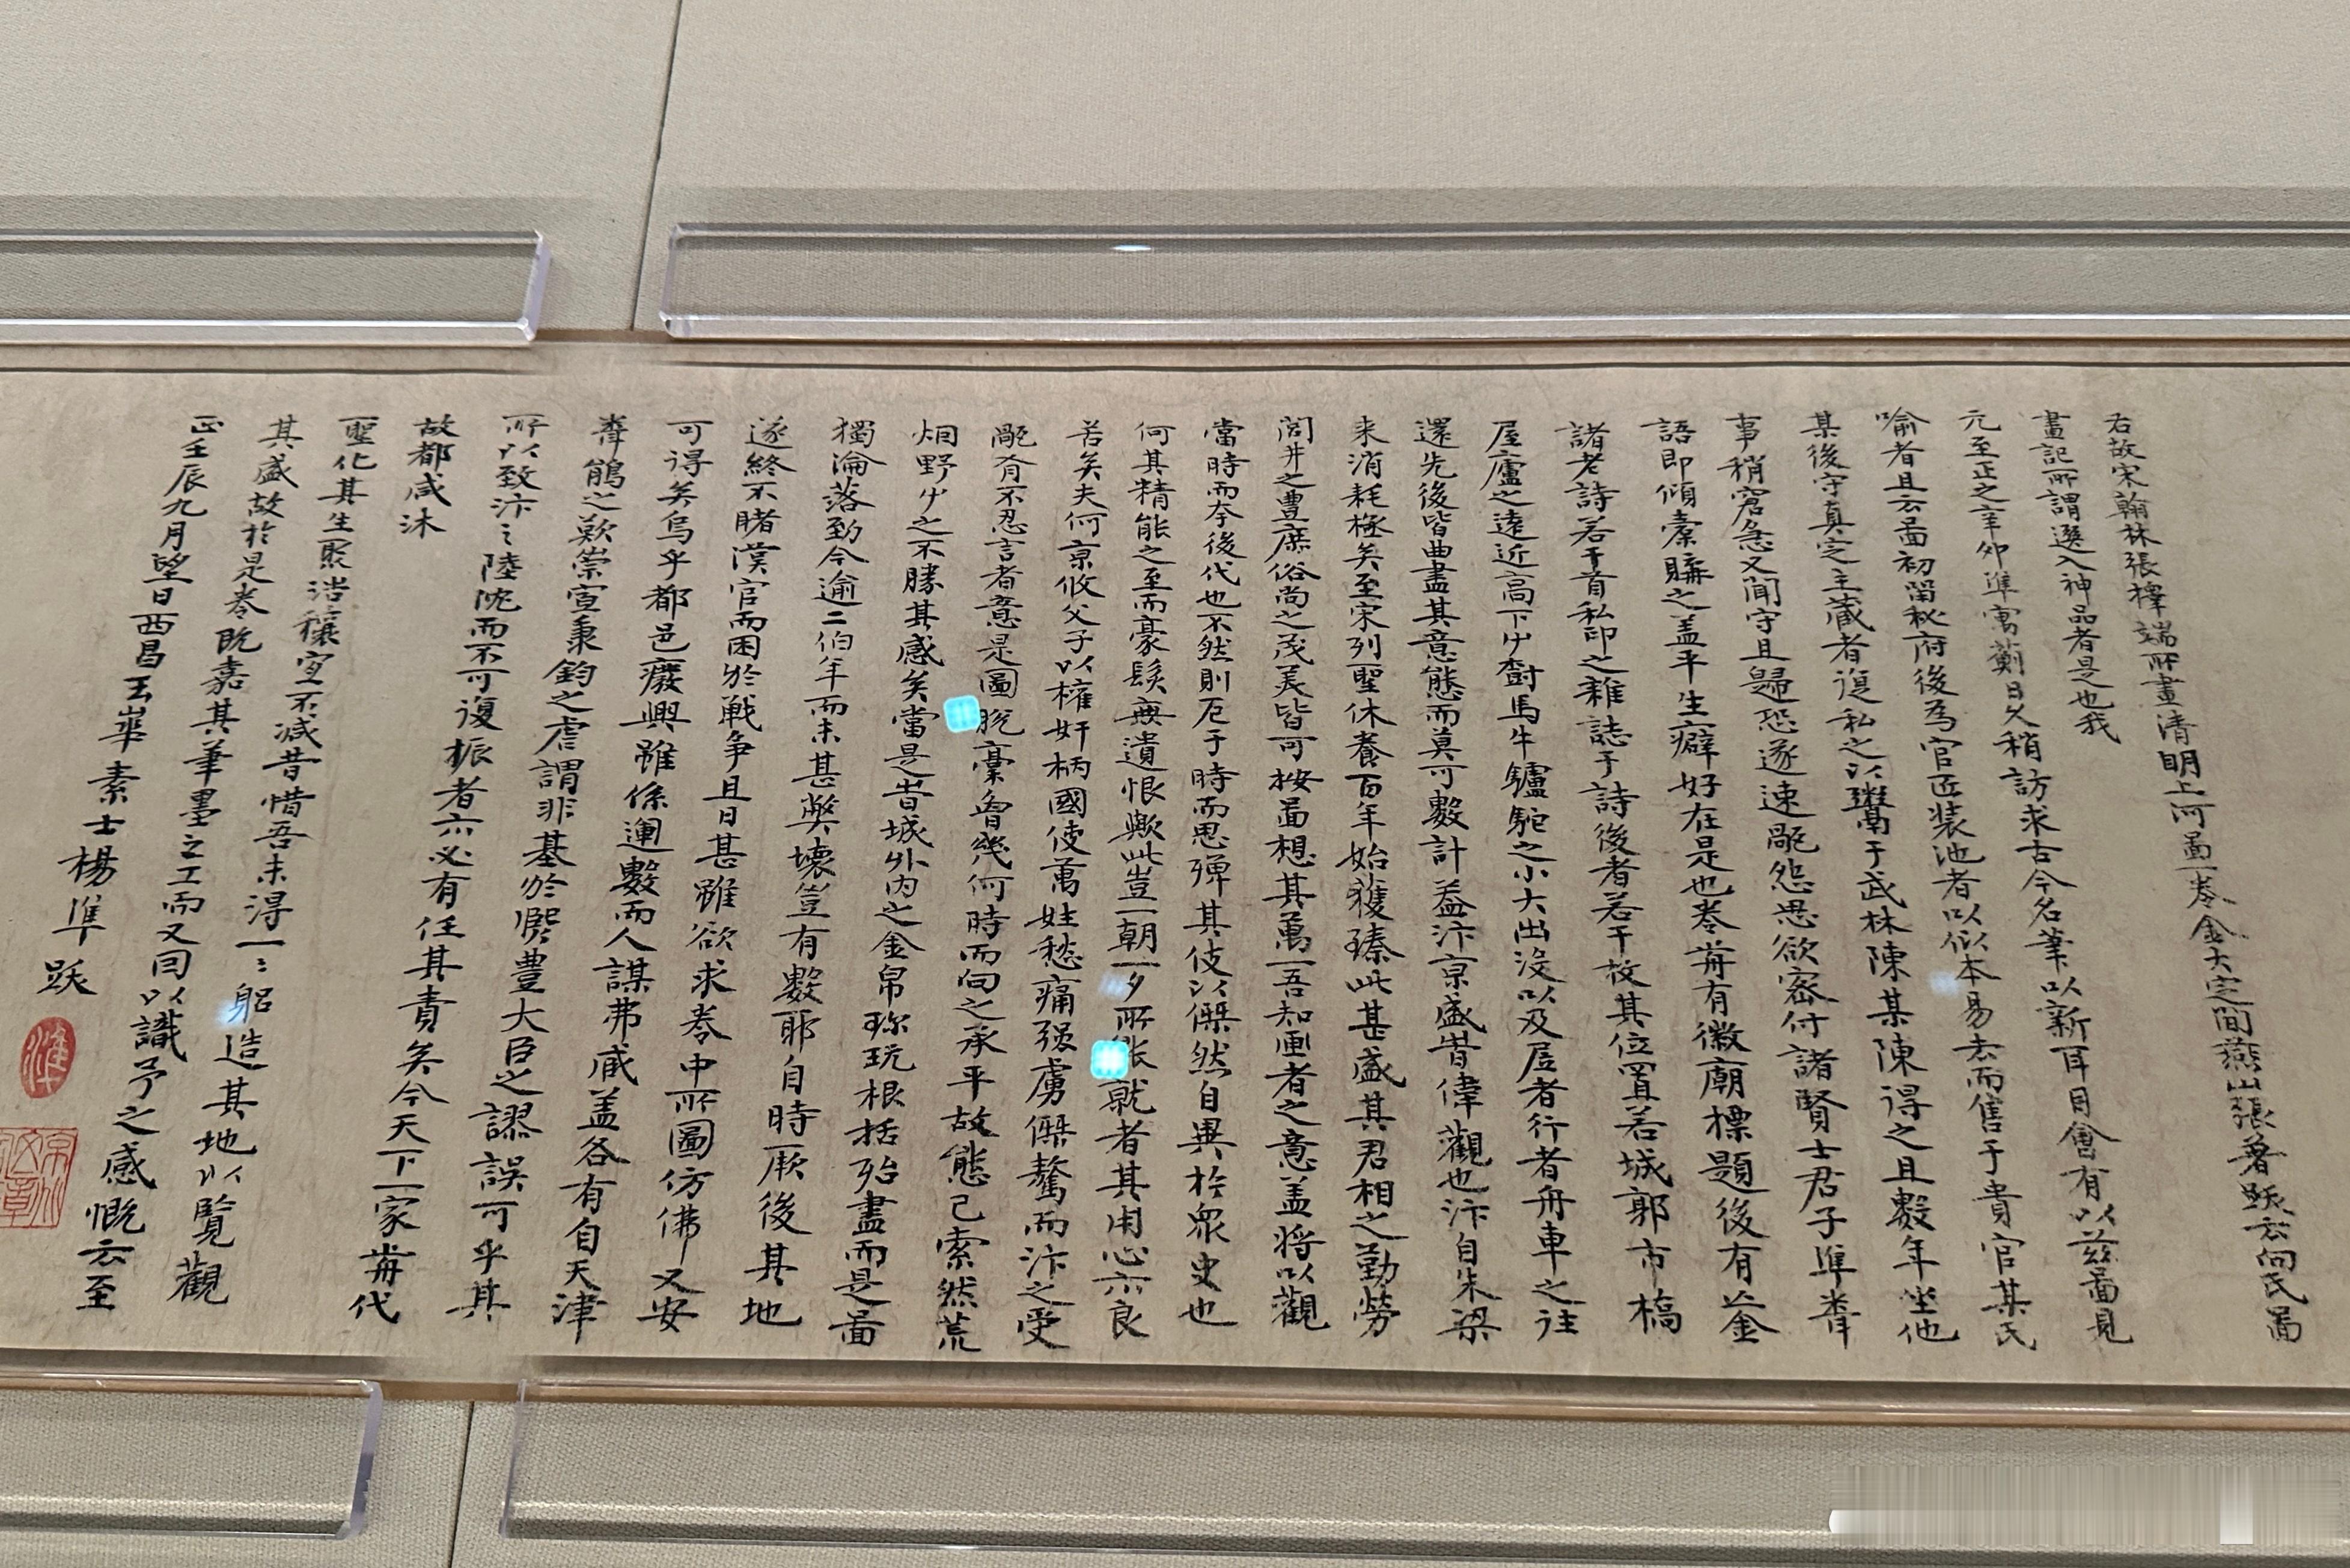 右故宋翰林張擇端所畫清明上河啚一卷金大定間燕山張著跋云向氏啚
畫記所謂選入神品者是也我
元至正之辛卯準寓薊日久稍訪求古今名筆以新耳目會有以兹啚見
喻者且云啚初留秘府後為官匠装池者以似本易去而售于貴官某氏
某後守真定主藏者復私之以鬻于武林陳某陳得之且數年坐他
事稍窘急又聞守且歸恐遂速颰怨思欲密付諸賢士君子準聞
語即傾橐購之盖平生癖好在是也卷前有徽廟標題後有金
諸老詩若干首私印之雜誌于詩後者若干枚其位置若城郭市橋
屋廬之遠近高下草樹馬牛驢駝之小大出沒以及居者行者舟車之往
還先後皆曲盡其意態而莫可數計盖汴京盛昔偉觀也汴自朱梁
来消耗極矣至宋列聖休養百年始獲臻此甚盛其君相之勤勞
閭井之豊庶俗尚之茂美皆可按啚想其萬一吾知画者之意盖將以觀
當時而夸後代也不然則厄于時而思殫其伎以傑然自異於衆史也
何其精能之至而豪髮無遺恨歟此豈一朝一夕所能就者其用心亦良
苦矣夫何京攸父子以權奸柄國使萬姓愁痛强虜傑驁而汴之受
有不忍言者意是圖脱稾曾幾何時而向之承平故態已索然荒
烟野草之不勝其感矣當是昔城外内之金帛珎玩根括殆盡而是啚
獨淪落到今逾二伯年而未甚弊壊豈有數耶自時厥後其地
遂終不睹漢官而困於戰争且日甚雖欲求卷中所圖仿佛又安
可得矣烏乎都邑廢興雖係運數而人謀弗臧盖各有自天津
聞鵑之歎崇宣秉鈞之虐謂非基於熈豊大臣之謬誤可乎其
所以致汴之陸沈而不可復振者亦必有任其責矣今天下一家前代
故都咸沐
聖化其生聚浩穰寔不減昔惜吾未得一〻躳造其地以覽觀
其盛故於是卷既嘉其筆墨之工而又因以識予之感慨云至
正壬辰九月望日西昌玉崋素士楊凖跋
準